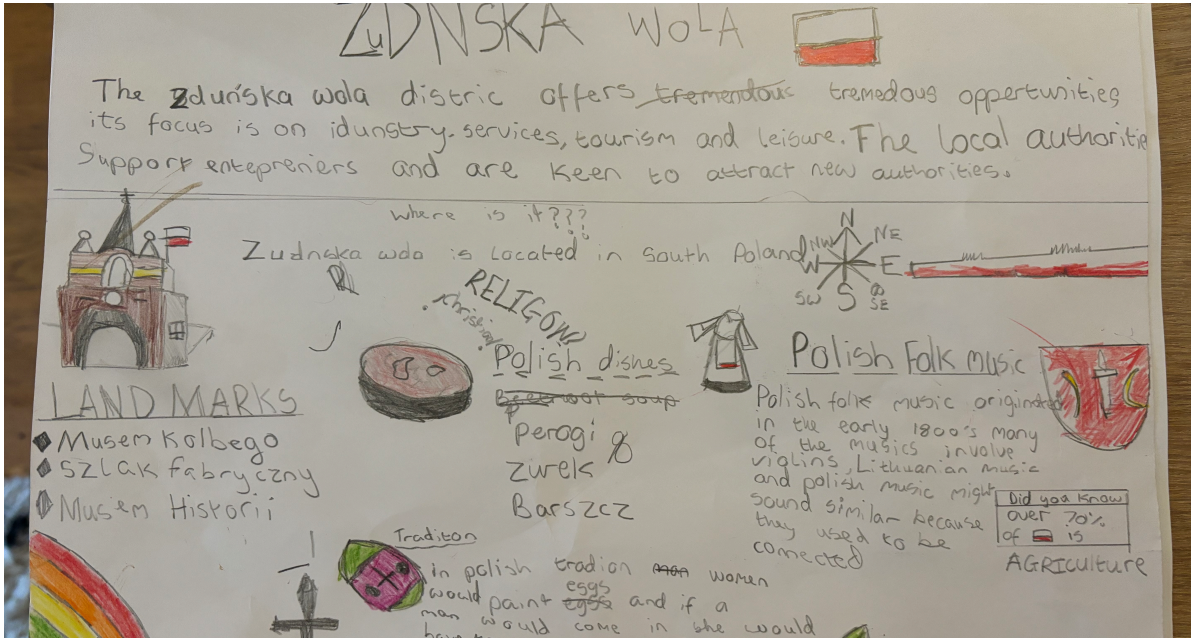 ZuDNSKA WOLA
The Zduńska wola distric offers tremendous tremedous oppertunities
its focus is on idunstry-services, tourism and leisure. The local authoritie
Support entepreniers and are keen to attract new authorities.
where is it???
Zudnska wola is Located in South Poland
N
NE
E
SE
S
SW
W
NW
RELIGON
Christian
LAND MARKS
Musem Kolbego
SZLak fabryczny
Musem Historii
Polish dishes
Beetroot soup
Perogi
zwek
Barszcz
Polish Folk music
Polish folk music originated
in the early 1800's many
of the musics involve
violins, Lithuanian music
and polish music might
sound similar because
they used to be
connected
Did you know
over 70%
of is
AGRICulture
Traditon
in polish tradion man women
would paint eggs eggs and if a
man would come in she would